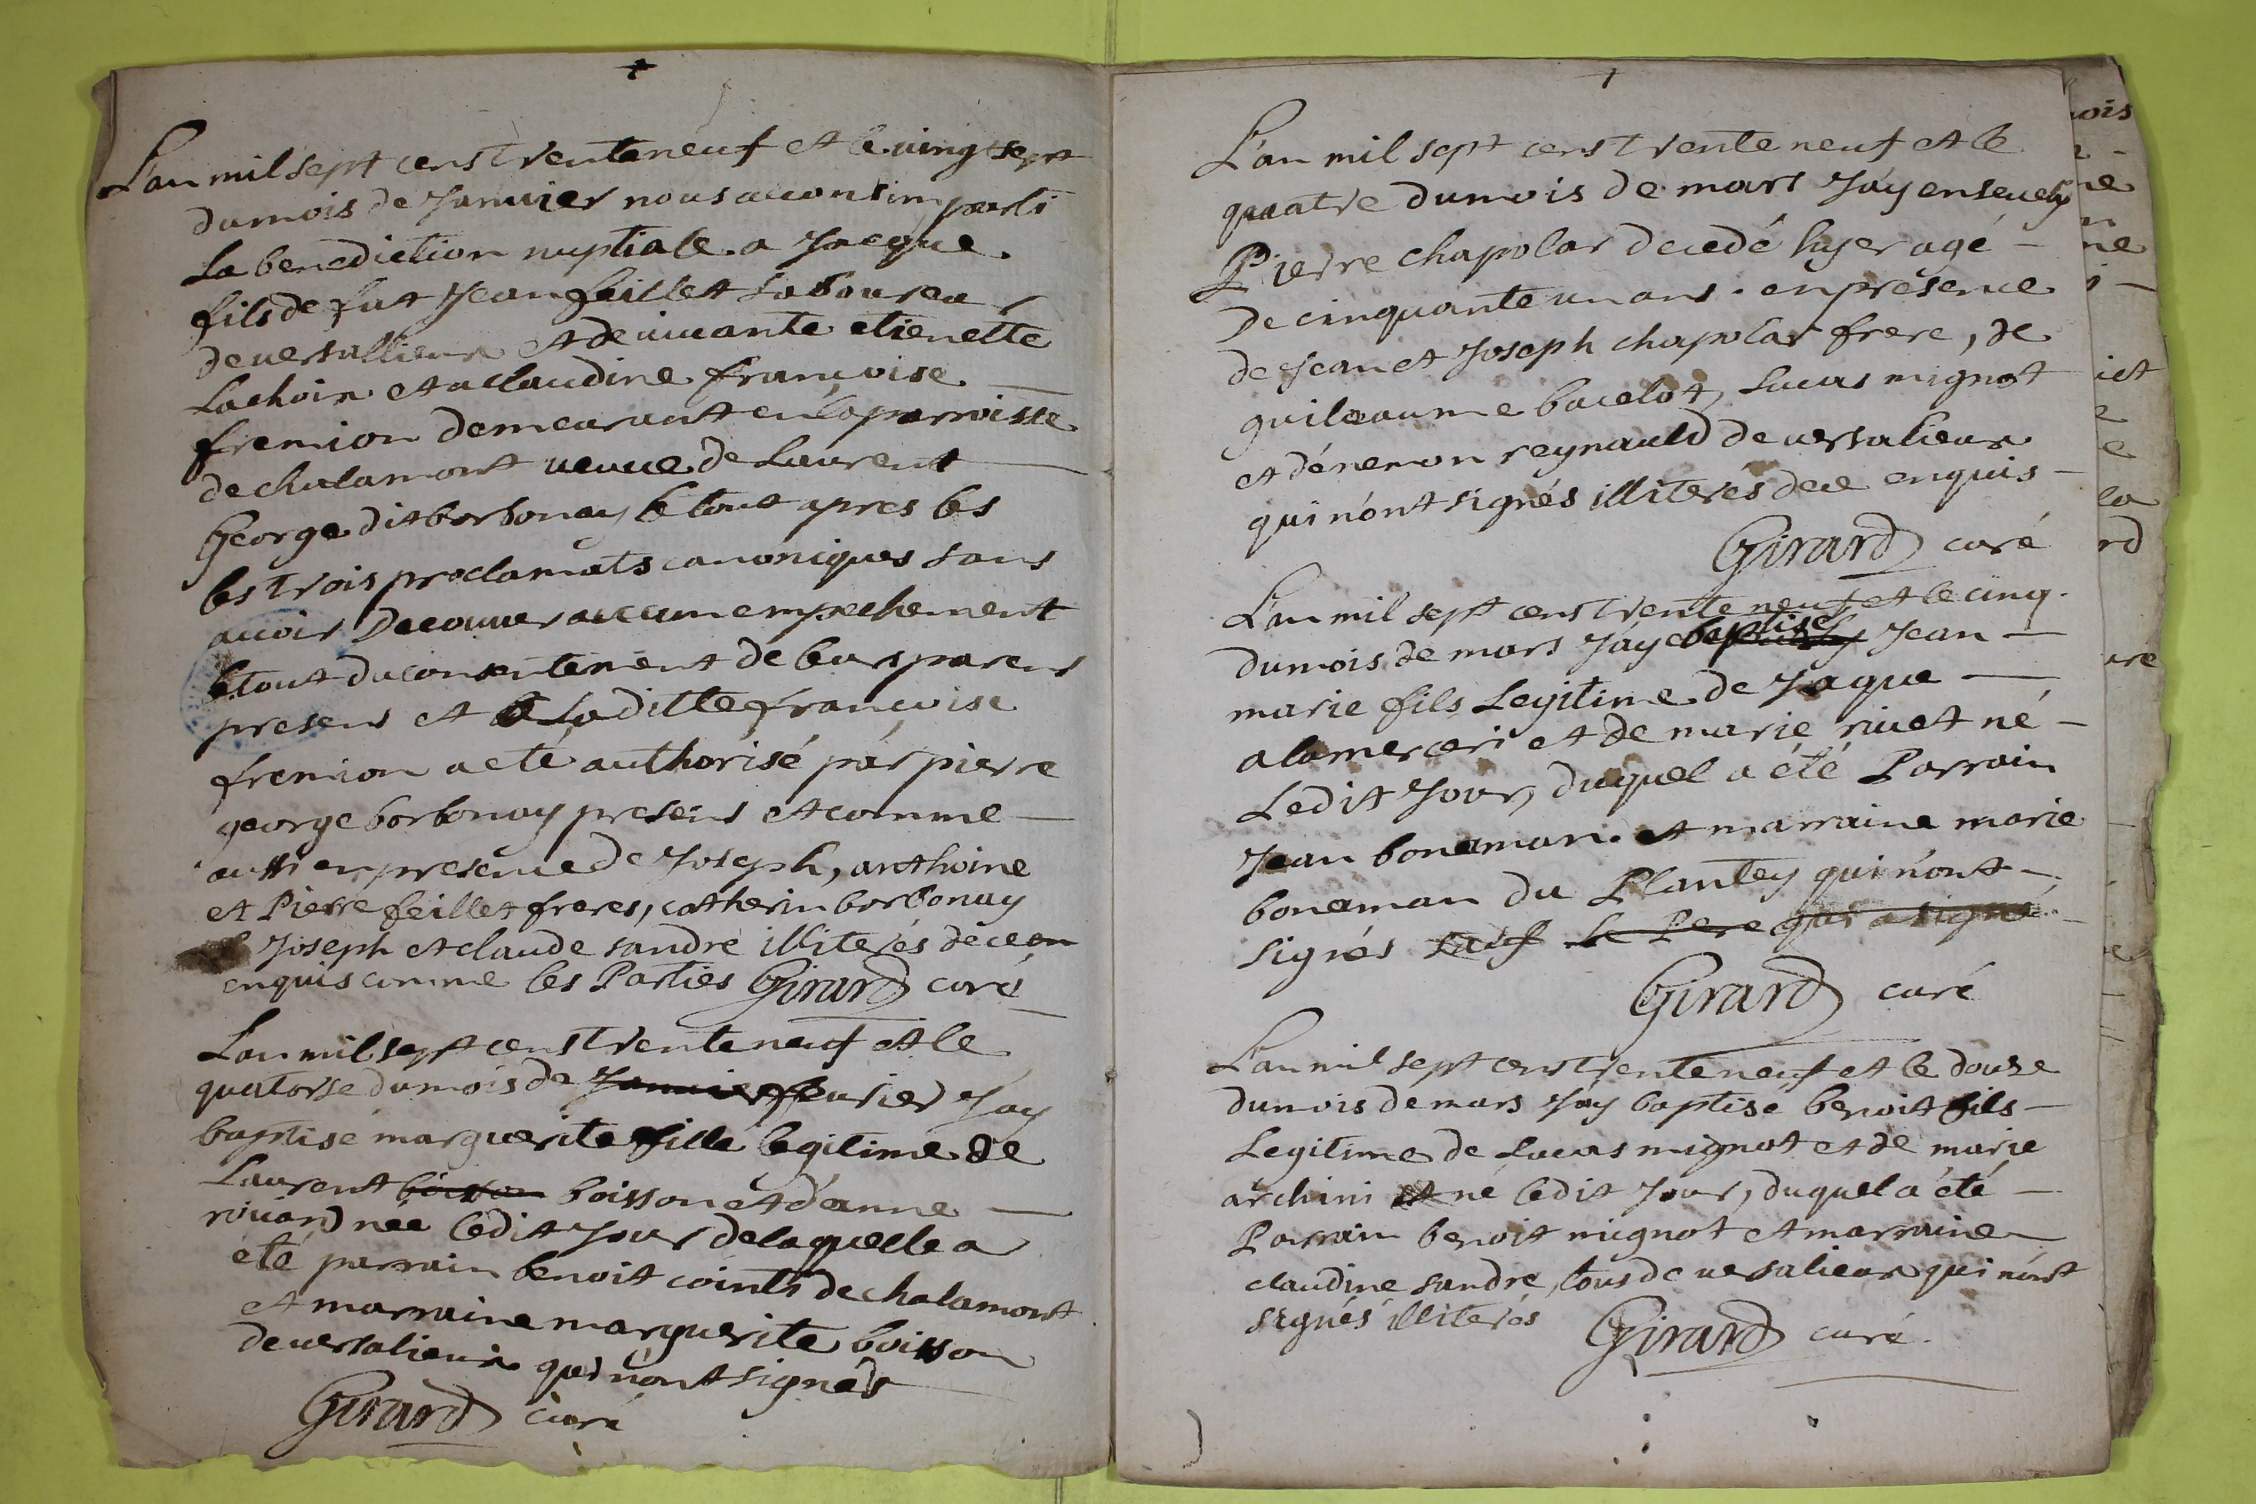 L'an mil sept cens trente neuf et le vingt sept
du mois de Janvier nous avons imparti
la benediction nuptiale a Jacque
fils de fut Jean feillet laboureur
de versallieux et de vivante etienette
Lachoin et a claudine françoise
fremion demeurant en la parroisse
de chalamont veuve de Laurent
George dit borbonay le tout apres les
les trois proclamats canoniques sans
avoir Decouver aucun empechement
le tout du consentement de leurs parens
presens et la ditte françoise
fremion a eté authorisé par pierre
george borbonay presens et comme
aussi en presence de Joseph, anthoine
et Pierre feillet freres, catherin borbonay
Joseph et claude sandre illiterés de ce en
enquis comme les Parties Girard curé
L'an mil sept cens trente neuf et le
quatorse du mois de Janvier fevrier J'ay
baptise marguerite fille legitime de
Laurent boisson boisson et d'anne
rivard née ledit Jour de laquelle a
eté parrain benoit cointi de chalamont
et marraine marguerite boisson
de versalieux qui n'ont signés
Girard curé
L'an mil sept cens trente neuf et le
quatre du mois de mars J'ay ensevely
Pierre chapolar decedé hyer agé
De cinquante un ans. en presence
de Jean et Joseph chapolar frere, de
guileaume bacelot, Lucas mignot
et d'enemon reynauld de versalieux
qui n'ont signés illiterés de ce enquis
Girard curé
L'an mil sept cens trente neuf et le cinq
du mois de mars J'ay baptisé Jean
marie fils Legitime de Jaque
alamerceri et de marie rivet né
Ledit Jour, duquel a été Parrain
Jean boneman. et marraine marie
boneman du Plantey qui n'ont
signés sauf le Pere qui a signé
Girard curé
L'an mil sept cens trente neuf et le douze
du mois de mars J'ay baptisé benoit fils
Legitime de Lucas mignot et de marie
archini et né ledit Jour, duquel a été
Parrain benoit mignot et marraine
claudine sandre, tous de versalieux qui n'ont
signés illiterés Girard curé.